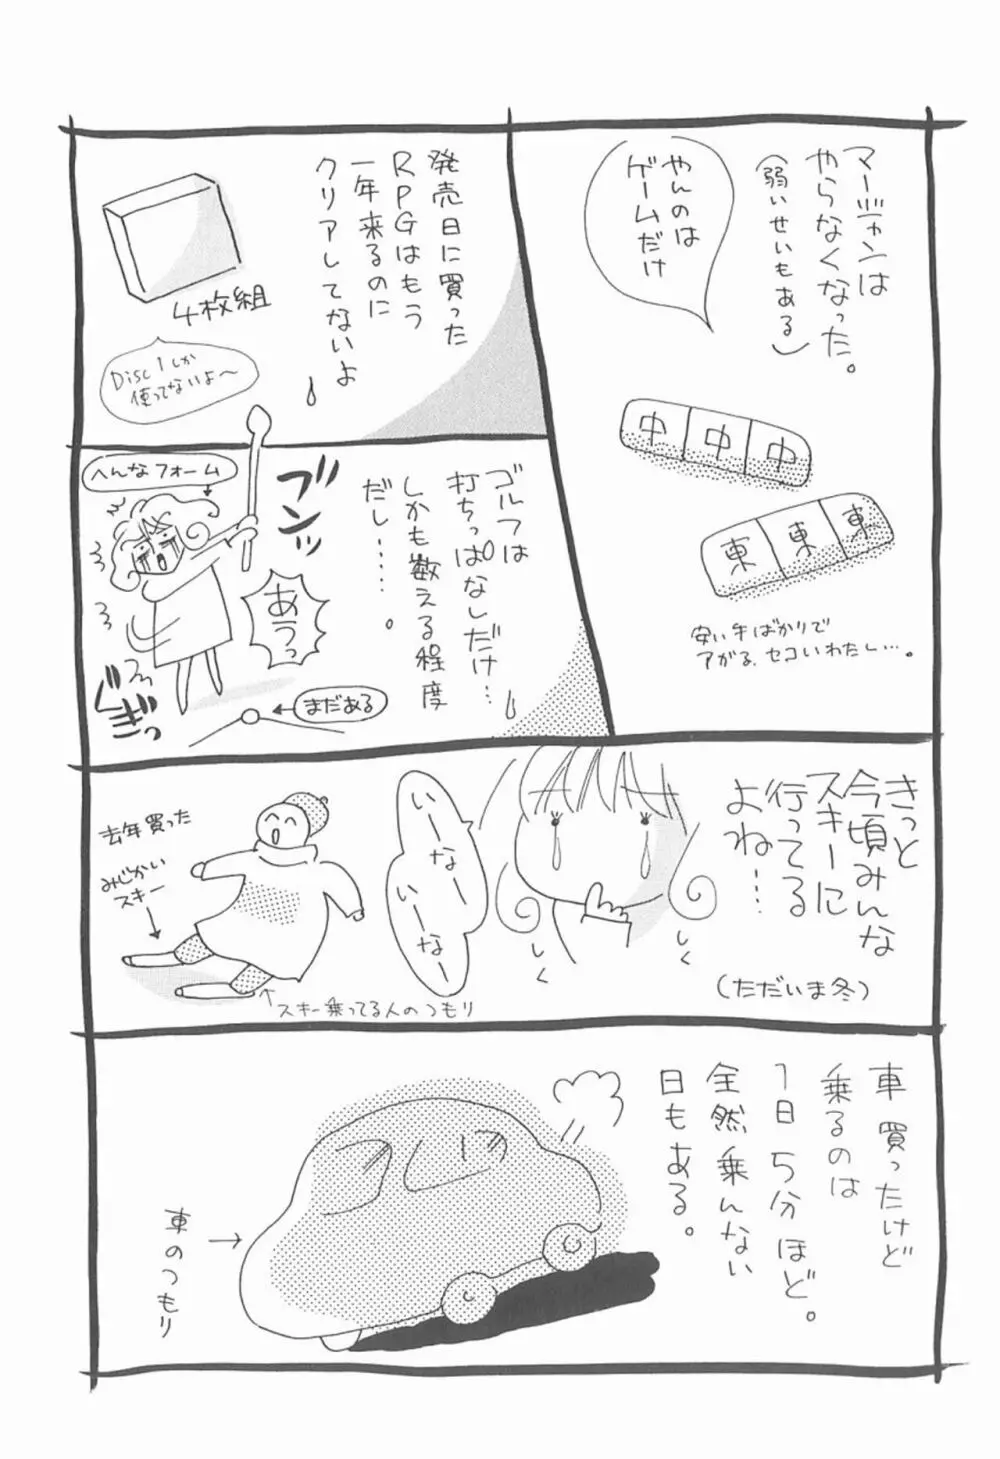 マージャンは
やらなくなった。
(弱いせいもある)
やんのは
ゲームだけ
中中中
東東東
安い手ばかりで
アがる、セコいわたし…。
発売日に買った
RPGはもう
一年来るのに
クリアしてないよ
4枚組
Disc1しか
使ってないよ〜
ゴルフは
打ちっぱなしだけ…
しかも数える程度
だし……。
ブンッ
へんなフォーム
あうっ
ぐぎっ
まだある
きっと
今頃みんな
スキーに
行ってる
よね…
(ただいま冬)
しく
しく
いーなー
いーなー
去年買った
みじかい
スキー
スキー乗ってる人のつもり
車買ったけど
乗るのは
1日5分ほど。
全然乗んない
日もある。
車のつもり